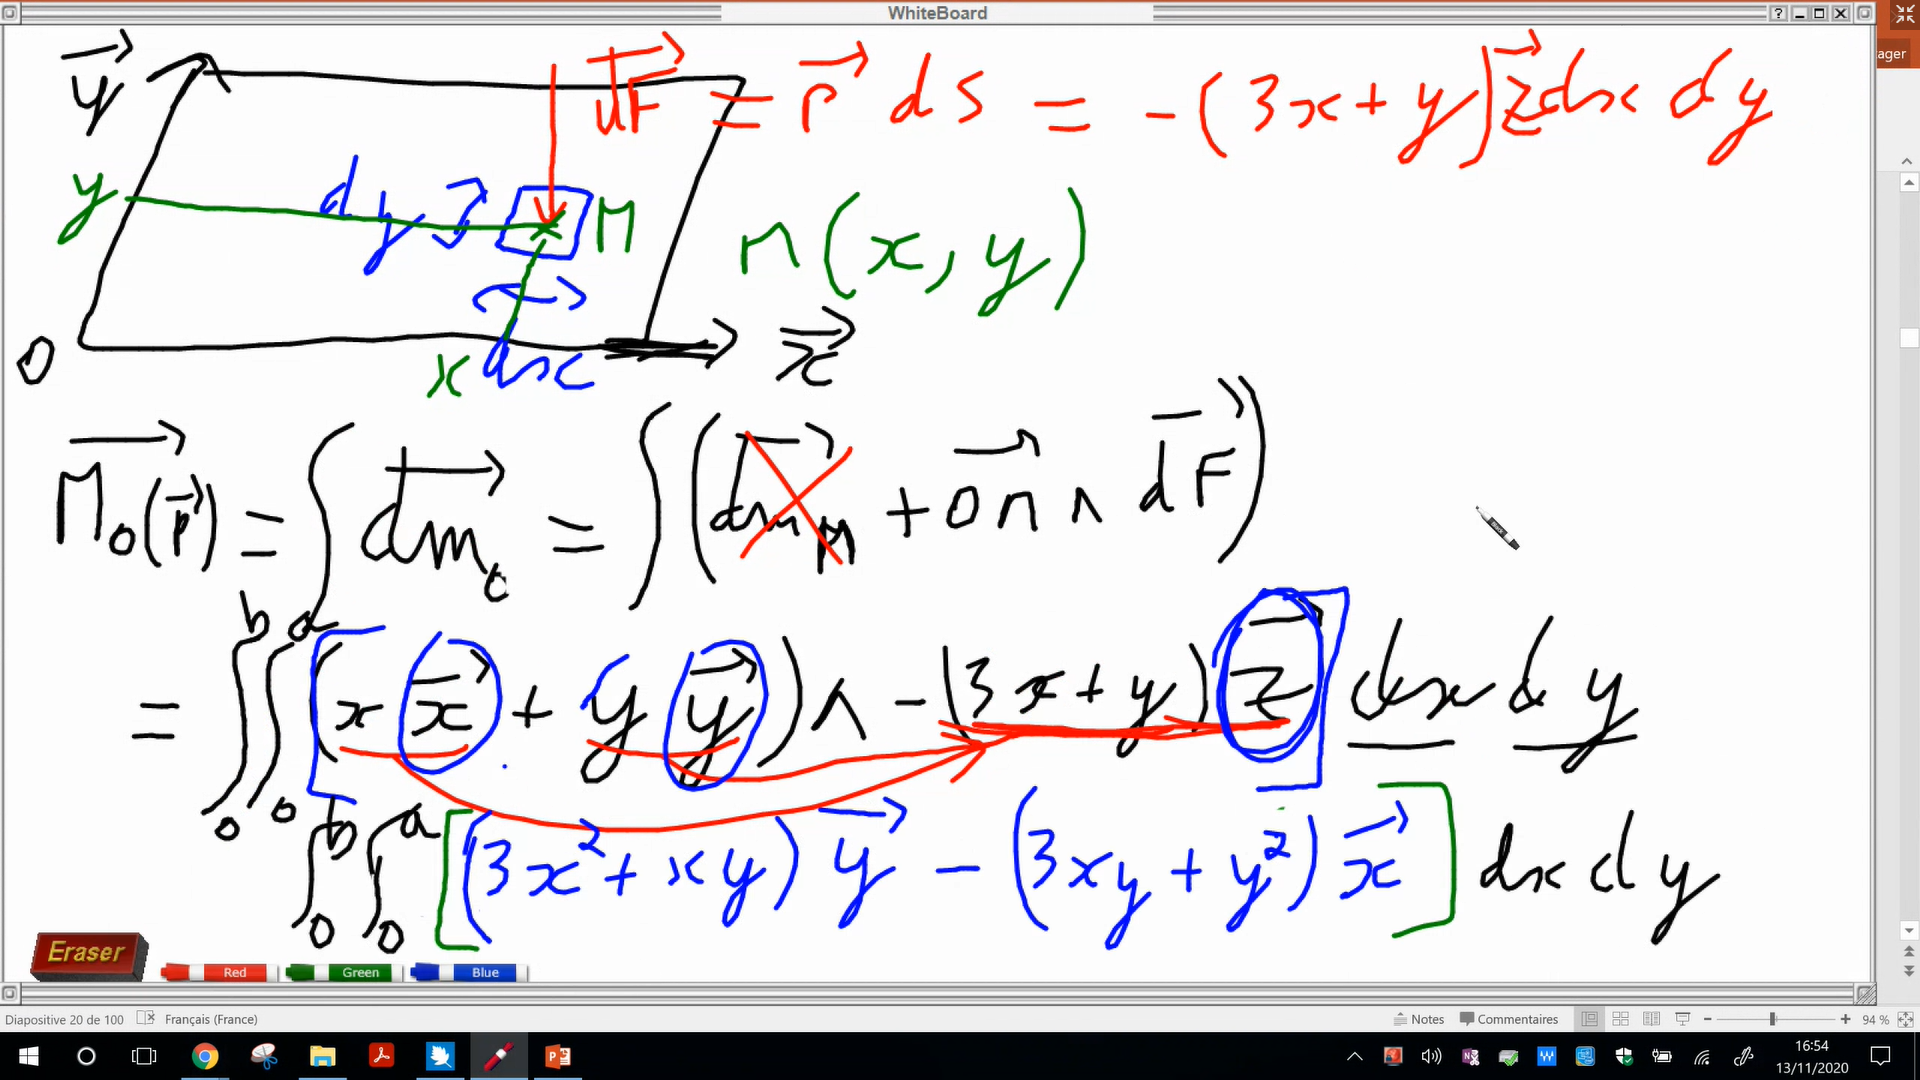 WhiteBoard
ager
y⃗
dF⃗ = p⃗ dS = -(3x+y)z⃗ dx dy
y
dy
M
M(x, y)
O
x dx
x⃗
M⃗_O(p⃗) = ∫ dm⃗_O = ∫(dm⃗_M + OM⃗ ∧ dF⃗)
= ∫₀ᵇ ∫₀ᵃ (x x⃗ + y y⃗) ∧ -(3x+y) z⃗ dx dy
∫₀ᵇ ∫₀ᵃ [(3x² + xy) y⃗ - (3xy + y²) x⃗] dx dy
Eraser Red Green Blue
Diapositive 20 de 100 Français (France) Notes Commentaires 94 %
16:54
13/11/2020